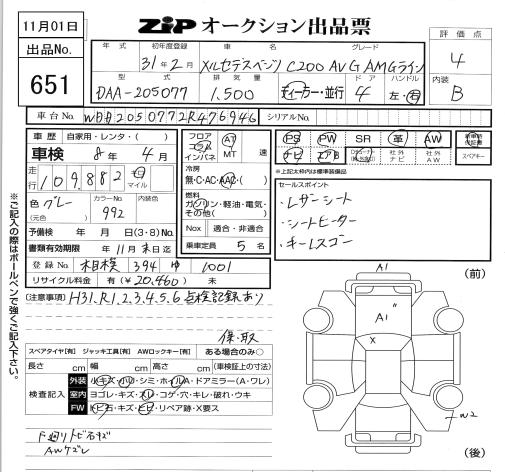 11月01日
出品No.
651
ZIP オークション出品票
評価点
4
内装
B
年式 初年度登録 車名 グレード
31年2月 メルセデスベンツ C200 AV G AMGライン
型式 排気量 ドア ハンドル
DAA-205077 1,500 ディーラー・並行 4 左・右
車台No. WDD2050772R476946 シリアルNo.
車歴 自家用・レンタ・( )
車検 8年 4月
走行 109,882 キロ マイル
色 グレー (元色) カラーNo. 992 内装色
予備検 年 月 日(3・8) No.
書類有効期限 年 11月末日迄
登録No 相模 394 ゆ 1001
リサイクル料金 有(¥20,460) 未
フロア コラム インパネ AT MT 速
冷房 無・C・AC・AAC・( )
燃料 ガソリン・軽油・電気・その他( )
Nox 適合・非適合
乗車定員 5 名
PS PW SR 革 AW
ナビ エアB 社外ナビ 社外AW
スペアキー
※上記太枠内は標準装備品
セールスポイント
レザーシート
シートヒーター
キーレスゴー
(注意事項) H31.R1.2.3.4.5.6点検記録あり
保・取
スペアタイヤ[有] ジャッキ工具[有] AWロックキー[有] ある場合のみ○
長さ cm 幅 cm 高さ cm (車検証上の寸法)
検査記入
外装 小キズ・小凹・シミ・ホイルA・ドアミラー(A・ワレ)
室内 ヨゴレ・キズ・スレ・コゲ・穴・キレ・破れ・ウキ
FW トビ石・キズ・ヒビ・リペア跡・X要ス
下廻りトビ石キズ
AWケズレ
※ご記入の際はボールペンで強くご記入下さい。
(前)
A1
A1
X
W2
(後)